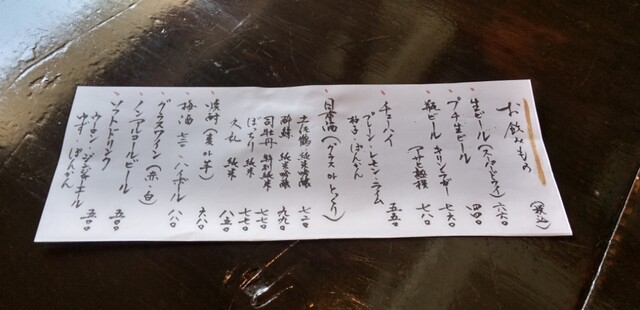 お飲みもの (税込)
生ビール(スーパードライ) 六六〇
プチ生ビール 四四〇
瓶ビール キリンラガー 七六〇
アサヒ熟撰 七八〇
チューハイ
プレーン・レモン・ライム
柚子・ぽんかん 五五〇
日本酒(グラス or とっくり)
土佐鶴 純米吟醸 七二〇
酔鯨 純米吟醸 九九〇
司牡丹 特別純米 七七〇
純米 七七〇
久礼 純米 八五〇
焼酎(麦・芋) 六八〇
梅酒 ハイボール 八八〇
グラスワイン(赤・白)
ノンアルコールビール
ソフトドリンク 五五〇
ウーロン・ジンジャエール
ゆず ぽんかん 五五〇